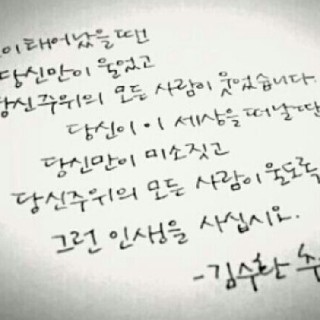 태어났을 땐
당신만이 울었고
당신 주위의 모든 사람이 웃었습니다.
당신이 이 세상을 떠날 땐
당신만이 미소짓고
당신 주위의 모든 사람이 울도록
그런 인생을 사십시오.
-김수환